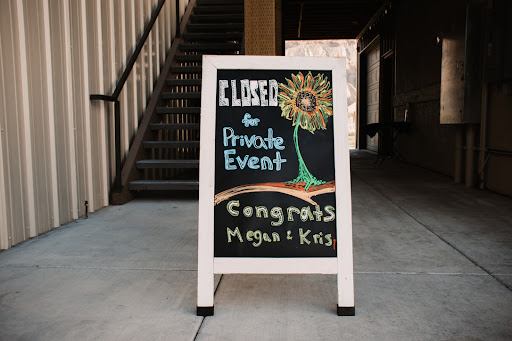 CLOSED
for
Private
Event
Congrats
Megan & Kris